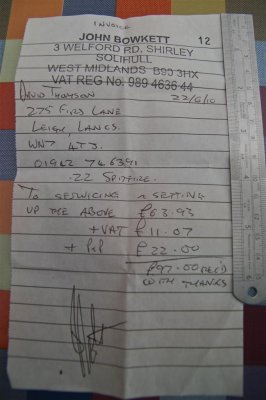 INVOICE
JOHN BOWKETT 12
3 WELFORD RD, SHIRLEY
SOLIHULL
WEST MIDLANDS B90 3HX
VAT REG No. 989 4636 44
DAVID THOMSON 22/6/10
275 FIRS LANE
LEIGH LANCS.
WN7 4TJ.
01942 746391
.22 SPITFIRE.
TO SERVICING & SETTING
UP THE ABOVE £63.93
+ VAT £11.07
+ P&P £22.00
£97.00 REC'D
WITH THANKS